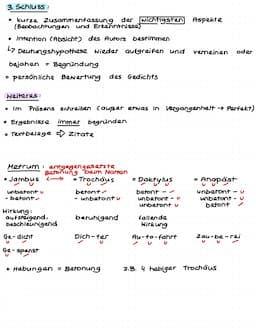 3. Schluss:
• kurze Zusammenfassung der wichtigsten Aspekte
(Beobachtungen und Erkenntnisse)
• Intention (Absicht) des Autors bestimmen
↳ Deutungshypothese wieder aufgreifen und verneinen oder
bejahen → Begründung
• persönliche Bewertung des Gedichts
Weiteres:
• Im Präsens schreiben (außer etwas in Vergangenheit → Perfekt)
• Ergebnisse immer begründen
• Textbelege ⇒ Zitate
Metrum: entgegengesetzte
Betonung beim Namen
• Jambus ↔ • Trochäus • Daktylus • Anapäst
unbetont betont betont unbetont
- betont - unbetont - unbetont - unbetont
unbetont betont
Wirkung:
aufsteigend, beruhigend fallende
beschleunigend Wirkung
Ge-dicht Dich-ter Au-to-fahrt Zau-be-rei
Ge-spenst
• Hebungen = Betonung z.B. 4 hebiger Trochäus